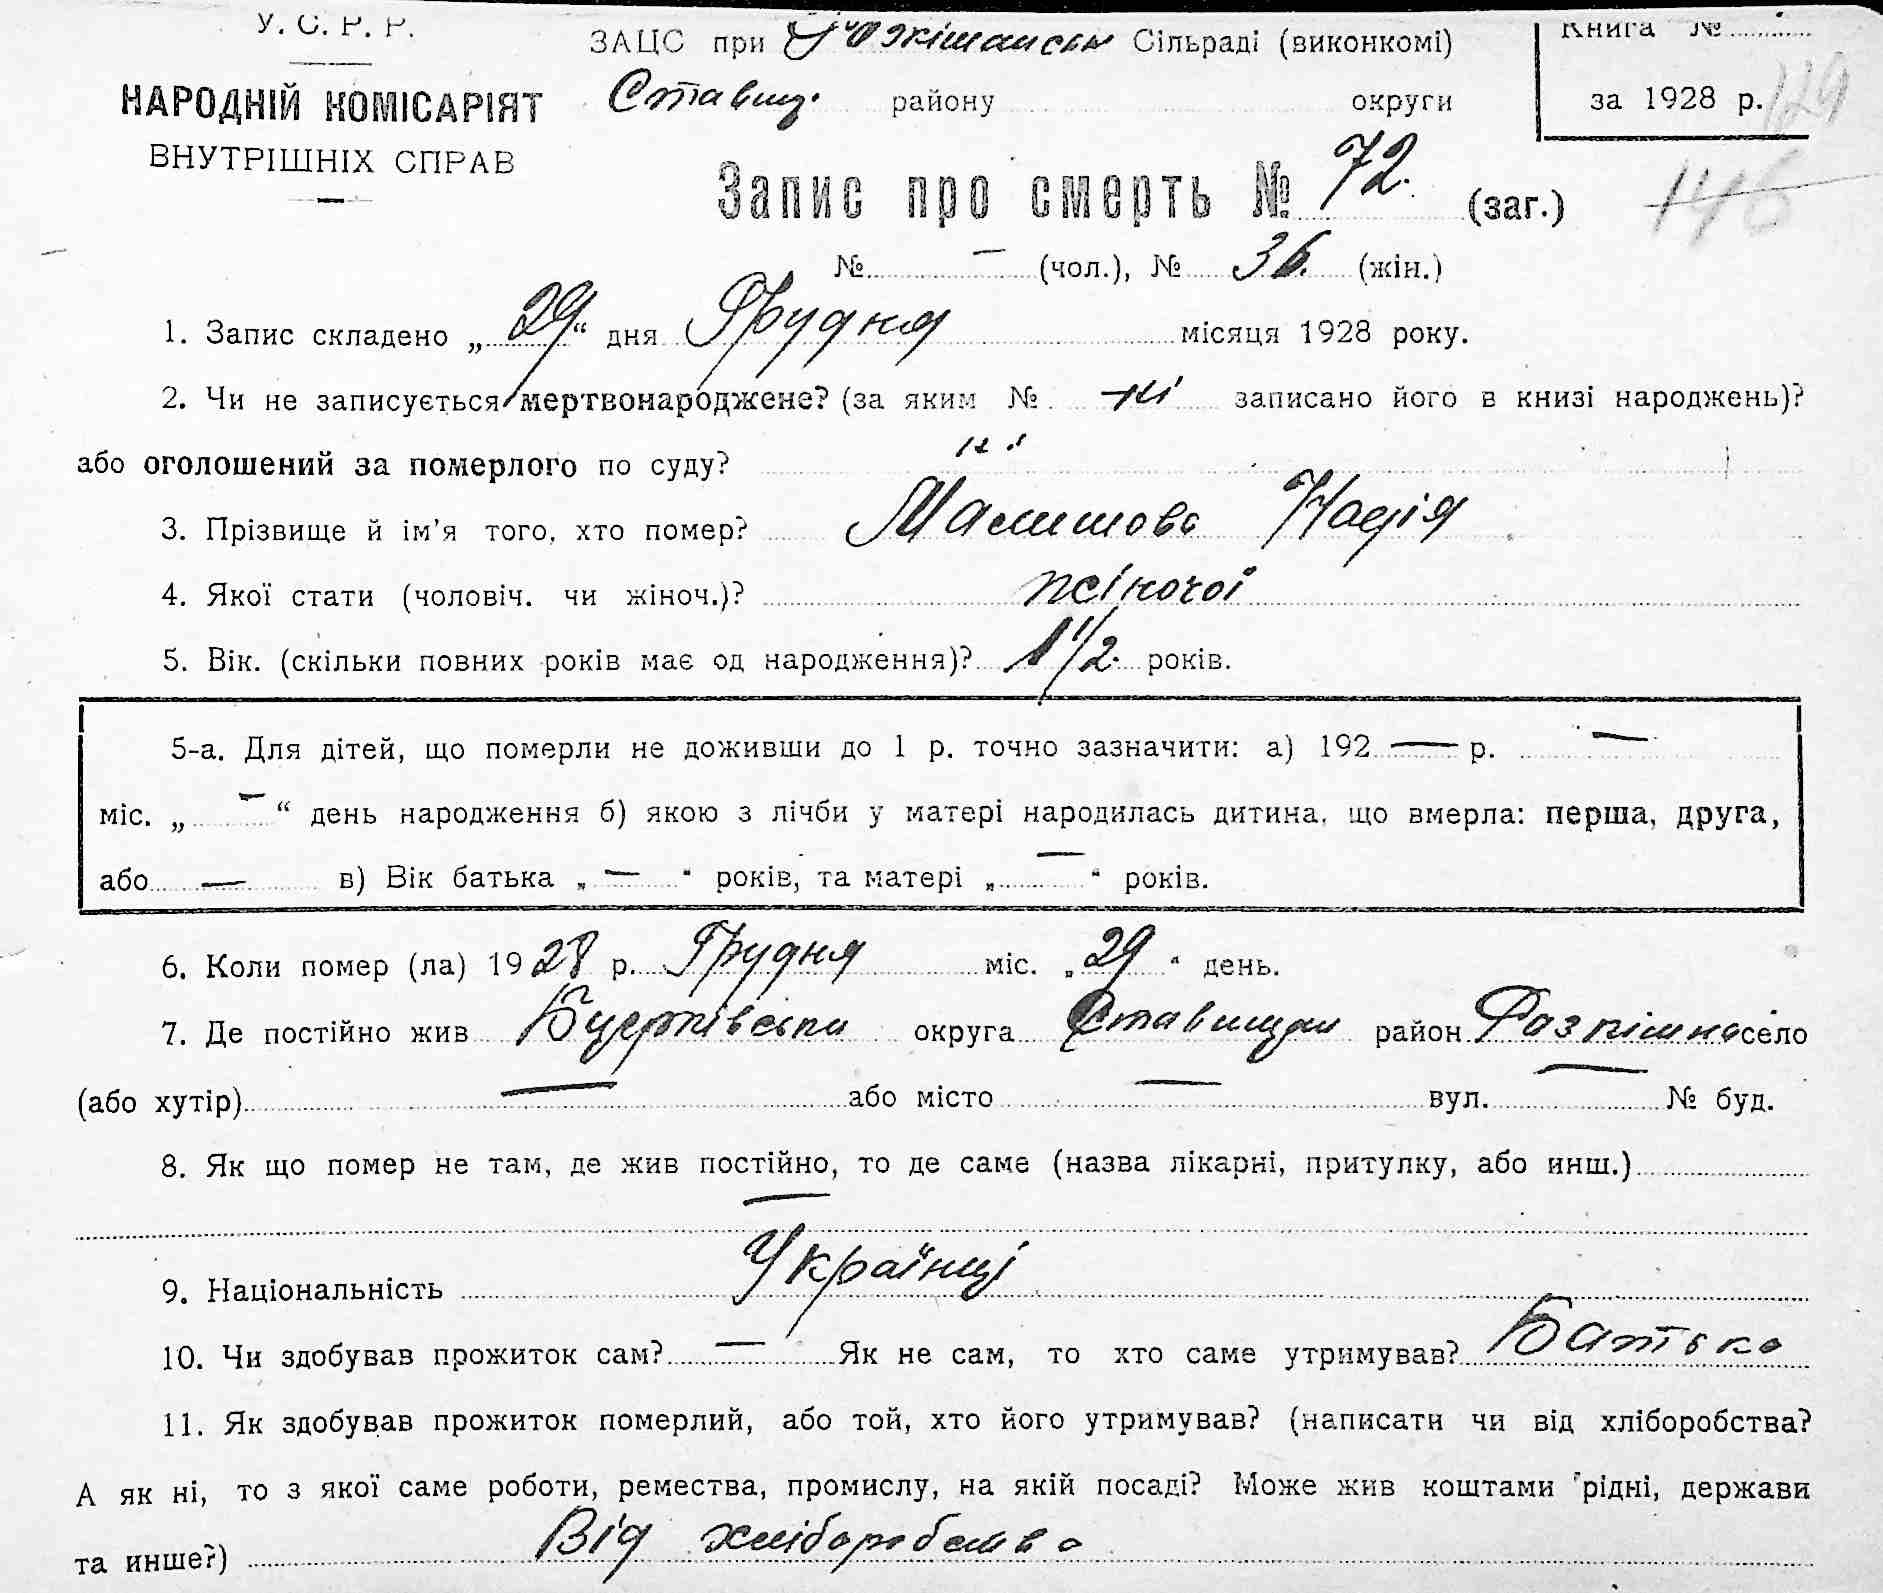 У. С. Р. Р.
НАРОДНІЙ КОМІСАРІЯТ
ВНУТРІШНІХ СПРАВ
ЗАЦС при Сільраді (виконкомі)
Ставищ. району округи
Книга №
за 1928 р. 129
146
Запис про смерть № 72. (заг.)
№ — (чол.), № 36. (жін.)
1. Запис складено „29“ дня Грудня місяця 1928 року.
2. Чи не записується мертвонароджене? (за яким № ні записано його в книзі народжень)?
або оголошений за померлого по суду? ні
3. Прізвище й ім'я того, хто помер? Малишова Надія
4. Якої стати (чоловіч. чи жіноч.)? жіночої
5. Вік. (скільки повних років має од народження)? 1 1/2. років.
5-а. Для дітей, що померли не доживши до 1 р. точно зазначити: а) 192 — р. —
міс. „ — “ день народження б) якою з лічби у матері народилась дитина, що вмерла: перша, друга,
або — в) Вік батька „ — “ років, та матері „ — “ років.
6. Коли помер (ла) 1928 р. Грудня міс. „29“ день.
7. Де постійно жив округа район Розкішна село
(або хутір) — або місто — вул. — № буд.
8. Як що помер не там, де жив постійно, то де саме (назва лікарні, притулку, або инш.)
—
9. Національність Українці
10. Чи здобував прожиток сам? — Як не сам, то хто саме утримував? Батько
11. Як здобував прожиток померлий, або той, хто його утримував? (написати чи від хліборобства?
А як ні, то з якої саме роботи, ремества, промислу, на якій посаді? Може жив коштами рідні, держави
та инше?) Від хліборобства